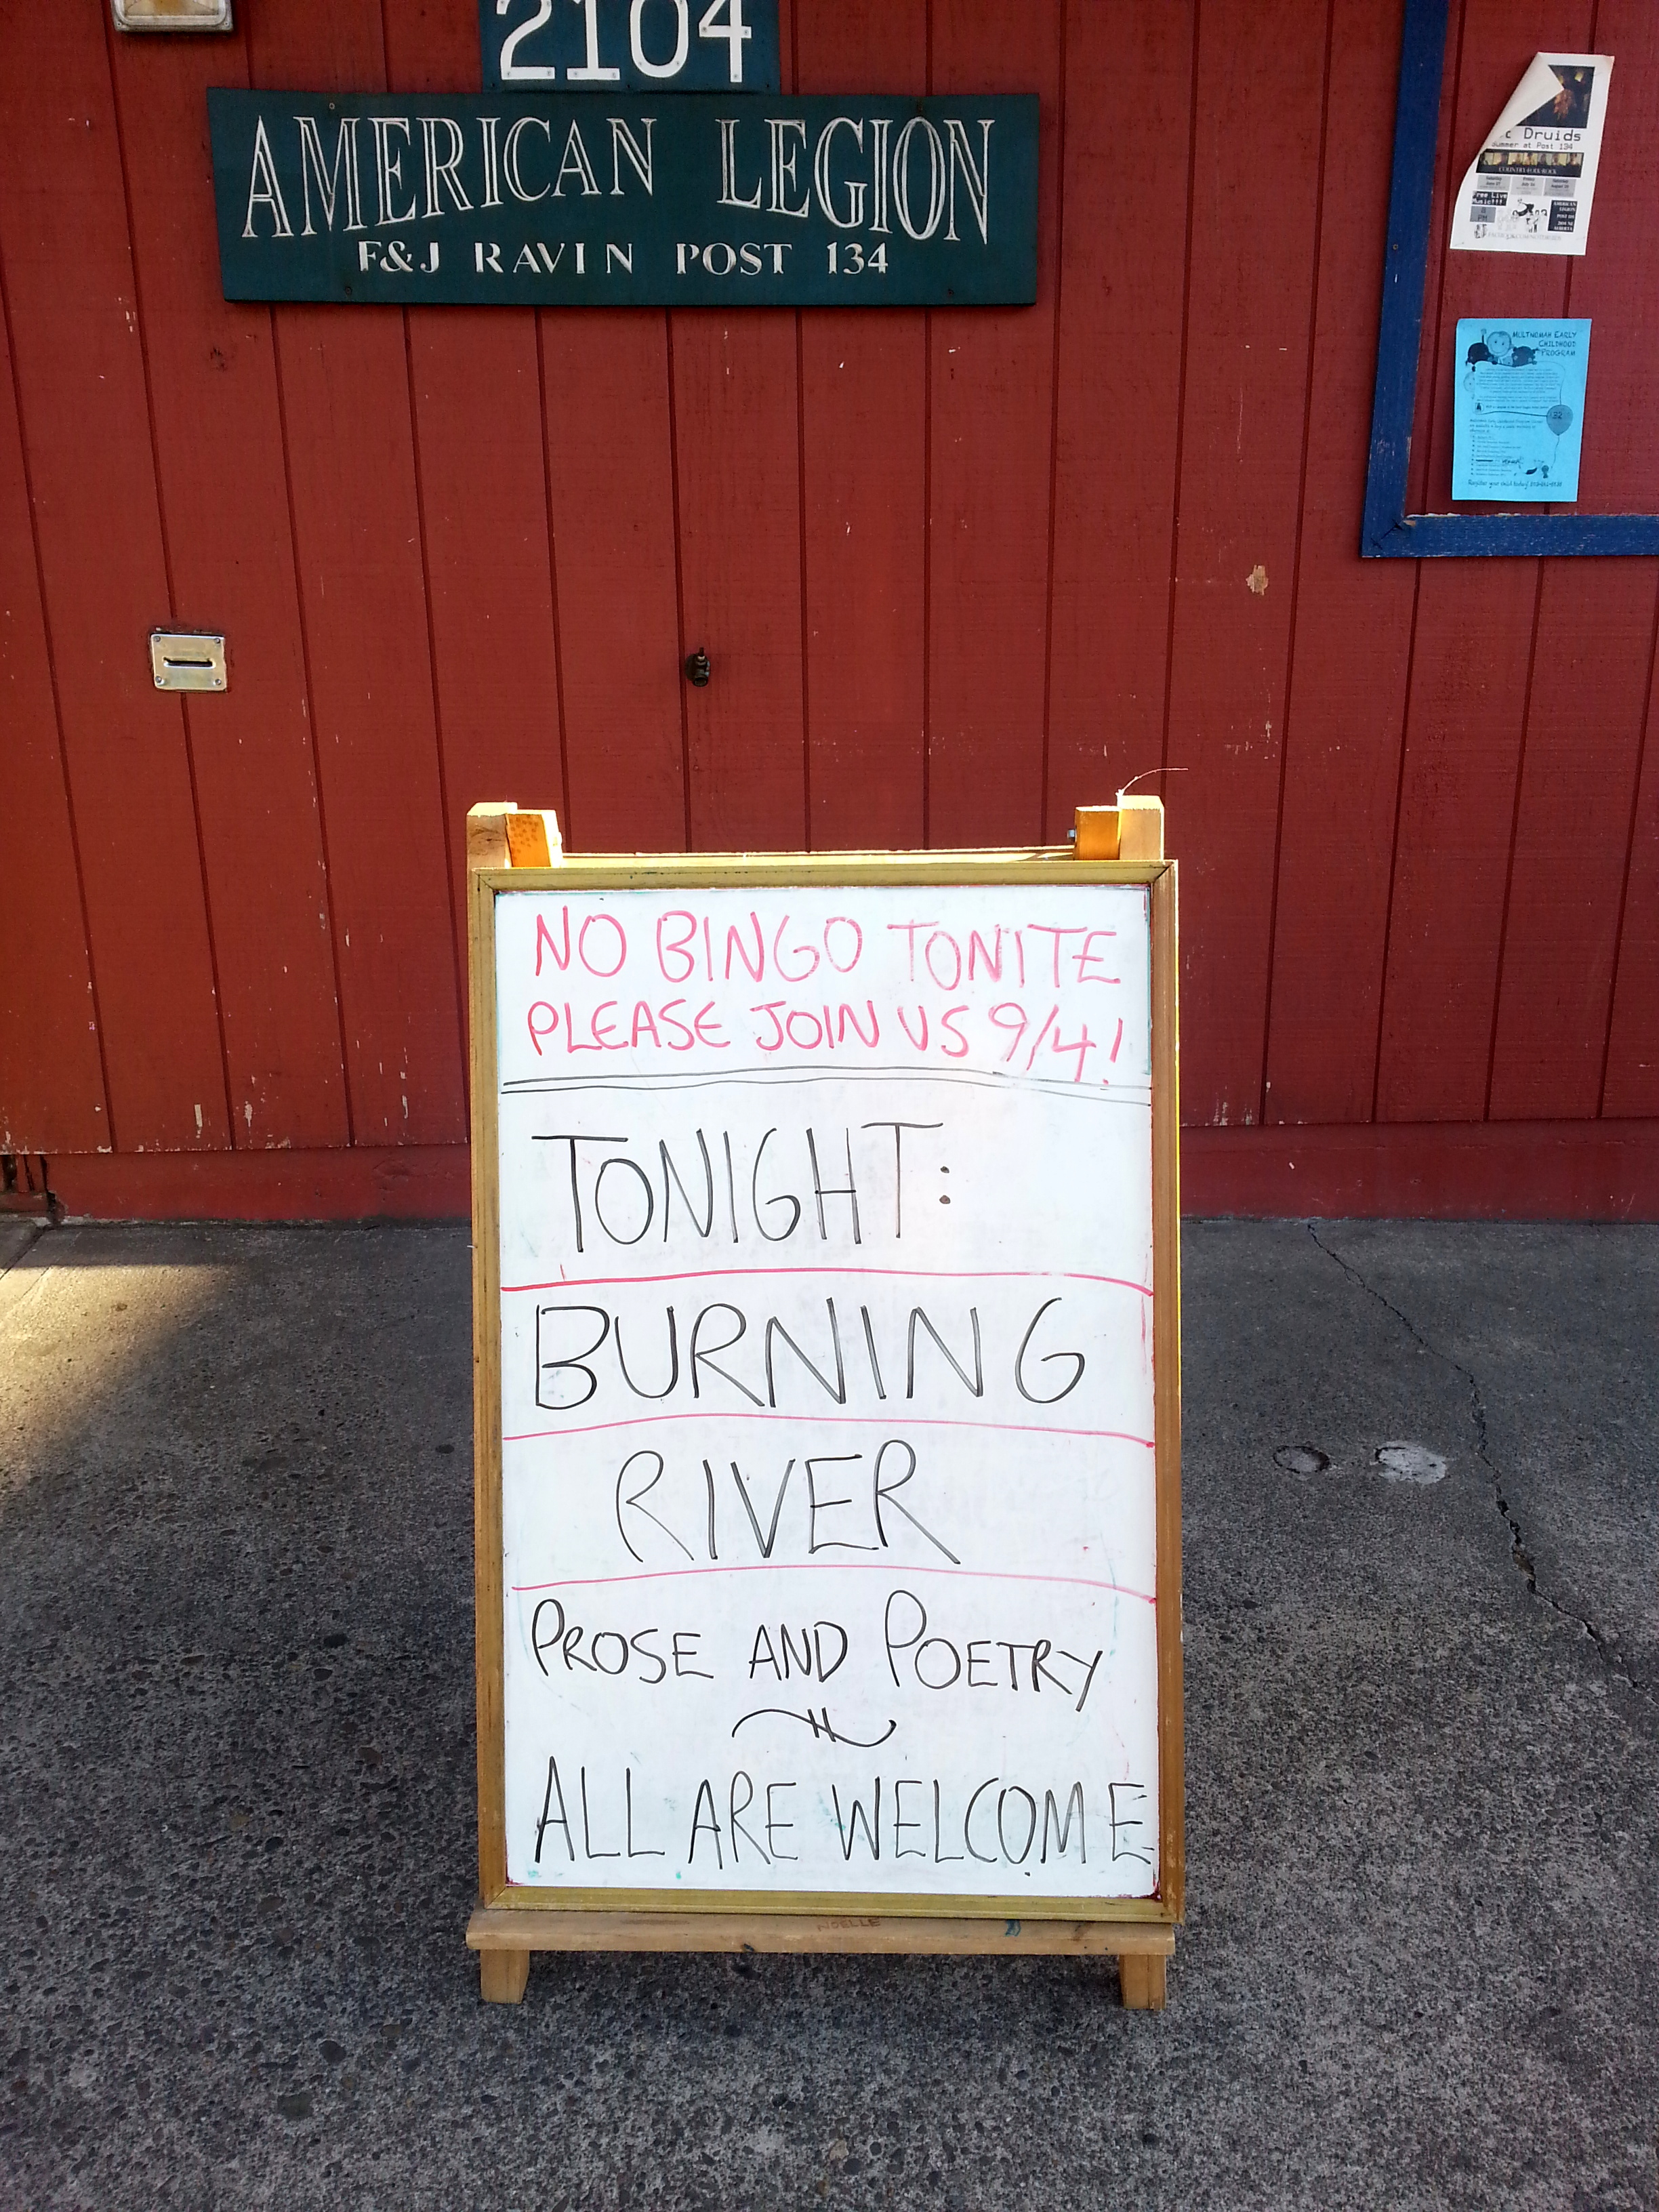 2104
AMERICAN LEGION
F&J RAVIN POST 134
Druids
Summer at Post 134
COUNTRY FOLK ROCK
Free Live
Music!!!
MULTNOMAH EARLY
CHILDHOOD
PROGRAM
NO BINGO TONITE
PLEASE JOIN US 9/4!
TONIGHT:
BURNING
RIVER
PROSE AND POETRY
ALL ARE WELCOME
NOELLE